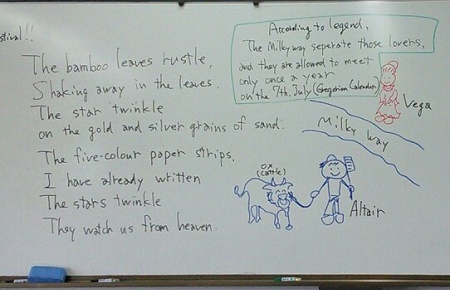 stival!!
The bamboo leaves rustle,
Shaking away in the leaves.
The star twinkle
on the gold and silver grains of sand.
The five-colour paper strips,
I have already written
The stars twinkle
They watch us from heaven.
According to legend,
The Milkyway seperate those lovers,
and they are allowed to meet
only once a year
on the 7th, July (Gregorian Calendar)
Vega
Milky way
ox
(cattle)
Altair